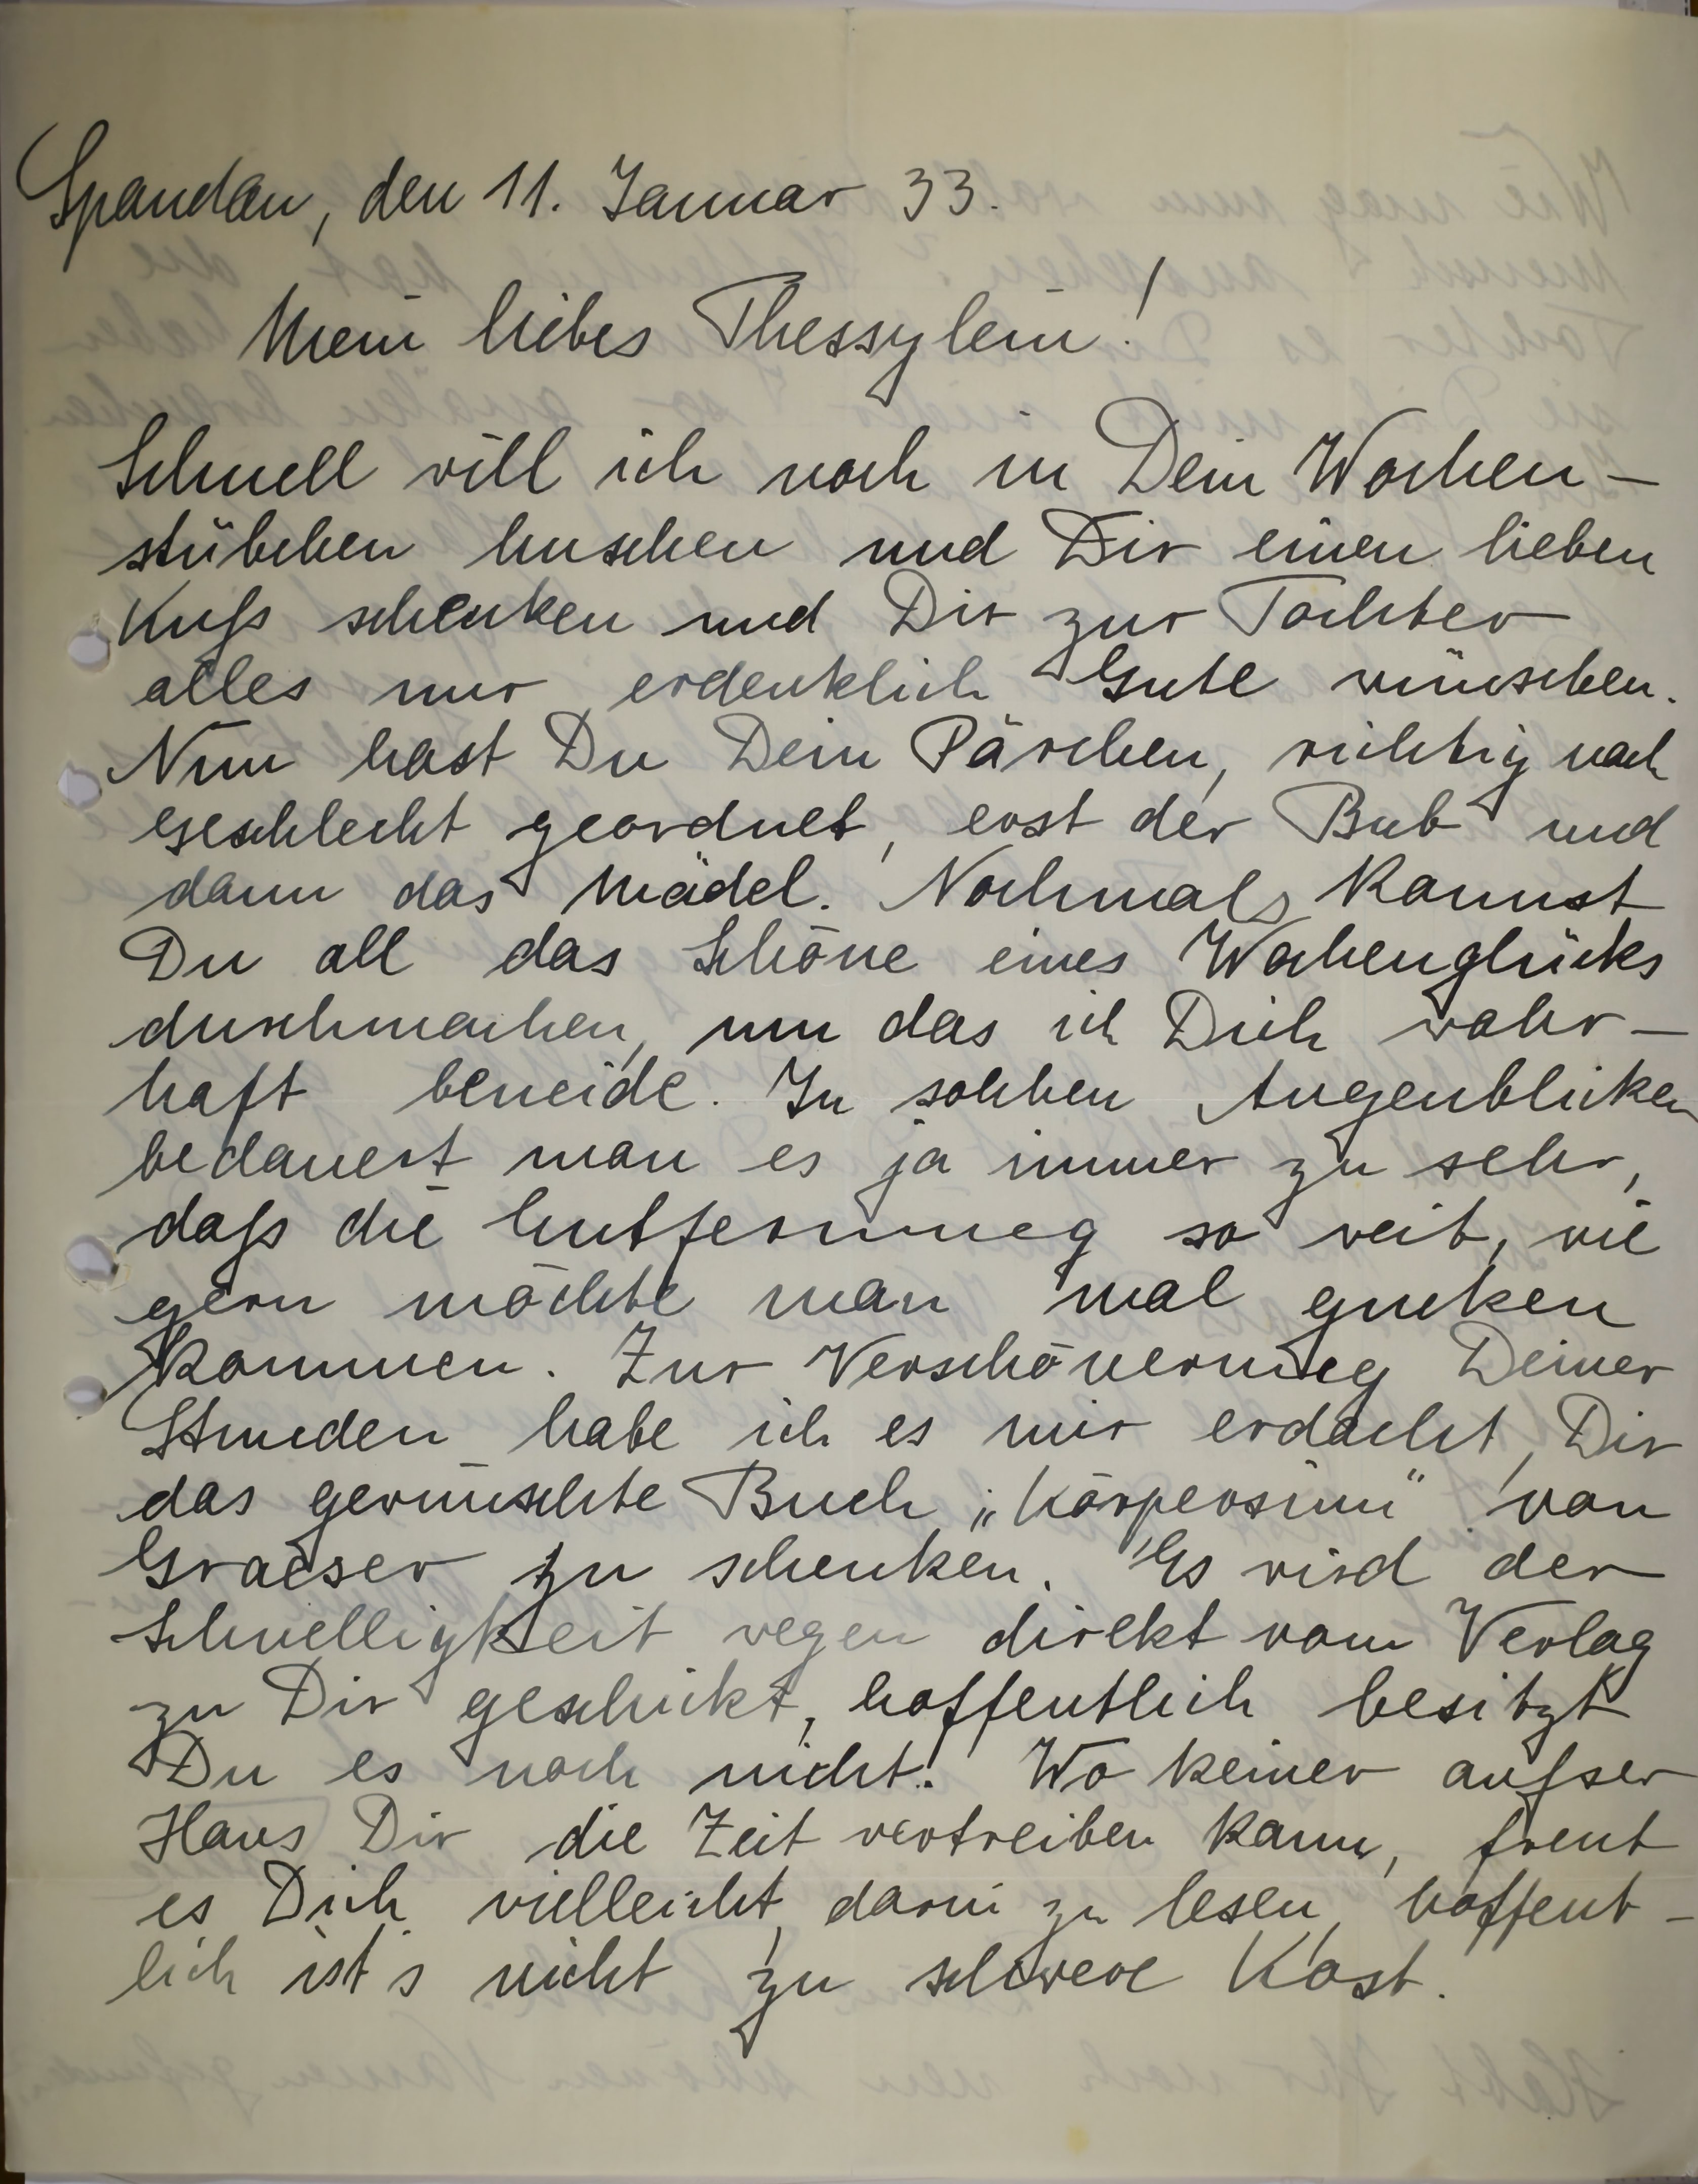 Spandau, den 11. Januar 33.
Mein liebes Thessylein!
Schnell will ich noch in Dein Wochen-
stübchen huschen und Dir einen lieben
Kuß schenken und Dir zur Tochter
alles nur erdenklich Gute wünschen.
Nun hast Du Dein Pärchen, richtig nach
Geschlecht geordnet, erst der Bub und
dann das Mädel. Nochmals kannst
Du all das Schöne eines Wochenglücks
durchmachen, um das ich Dich wahr-
haft beneide. In solchen Augenblicken
bedauert man es ja immer zu sehr,
daß die Entfernung so weit, wie
gern möchte man mal gucken
kommen. Zur Verschönerung Deiner
Stunden habe ich es mir erdacht, Dir
das gewünschte Buch „Körpersinn" von
Graeser zu schenken. Es wird der
Schnelligkeit wegen direkt vom Verlag
zu Dir geschickt, hoffentlich besitzt
Du es noch nicht! Wo keiner außer
Hans Dir die Zeit vertreiben kann, freut
es Dich vielleicht, darin zu lesen, hoffent-
lich ist's nicht zu schwere Kost.